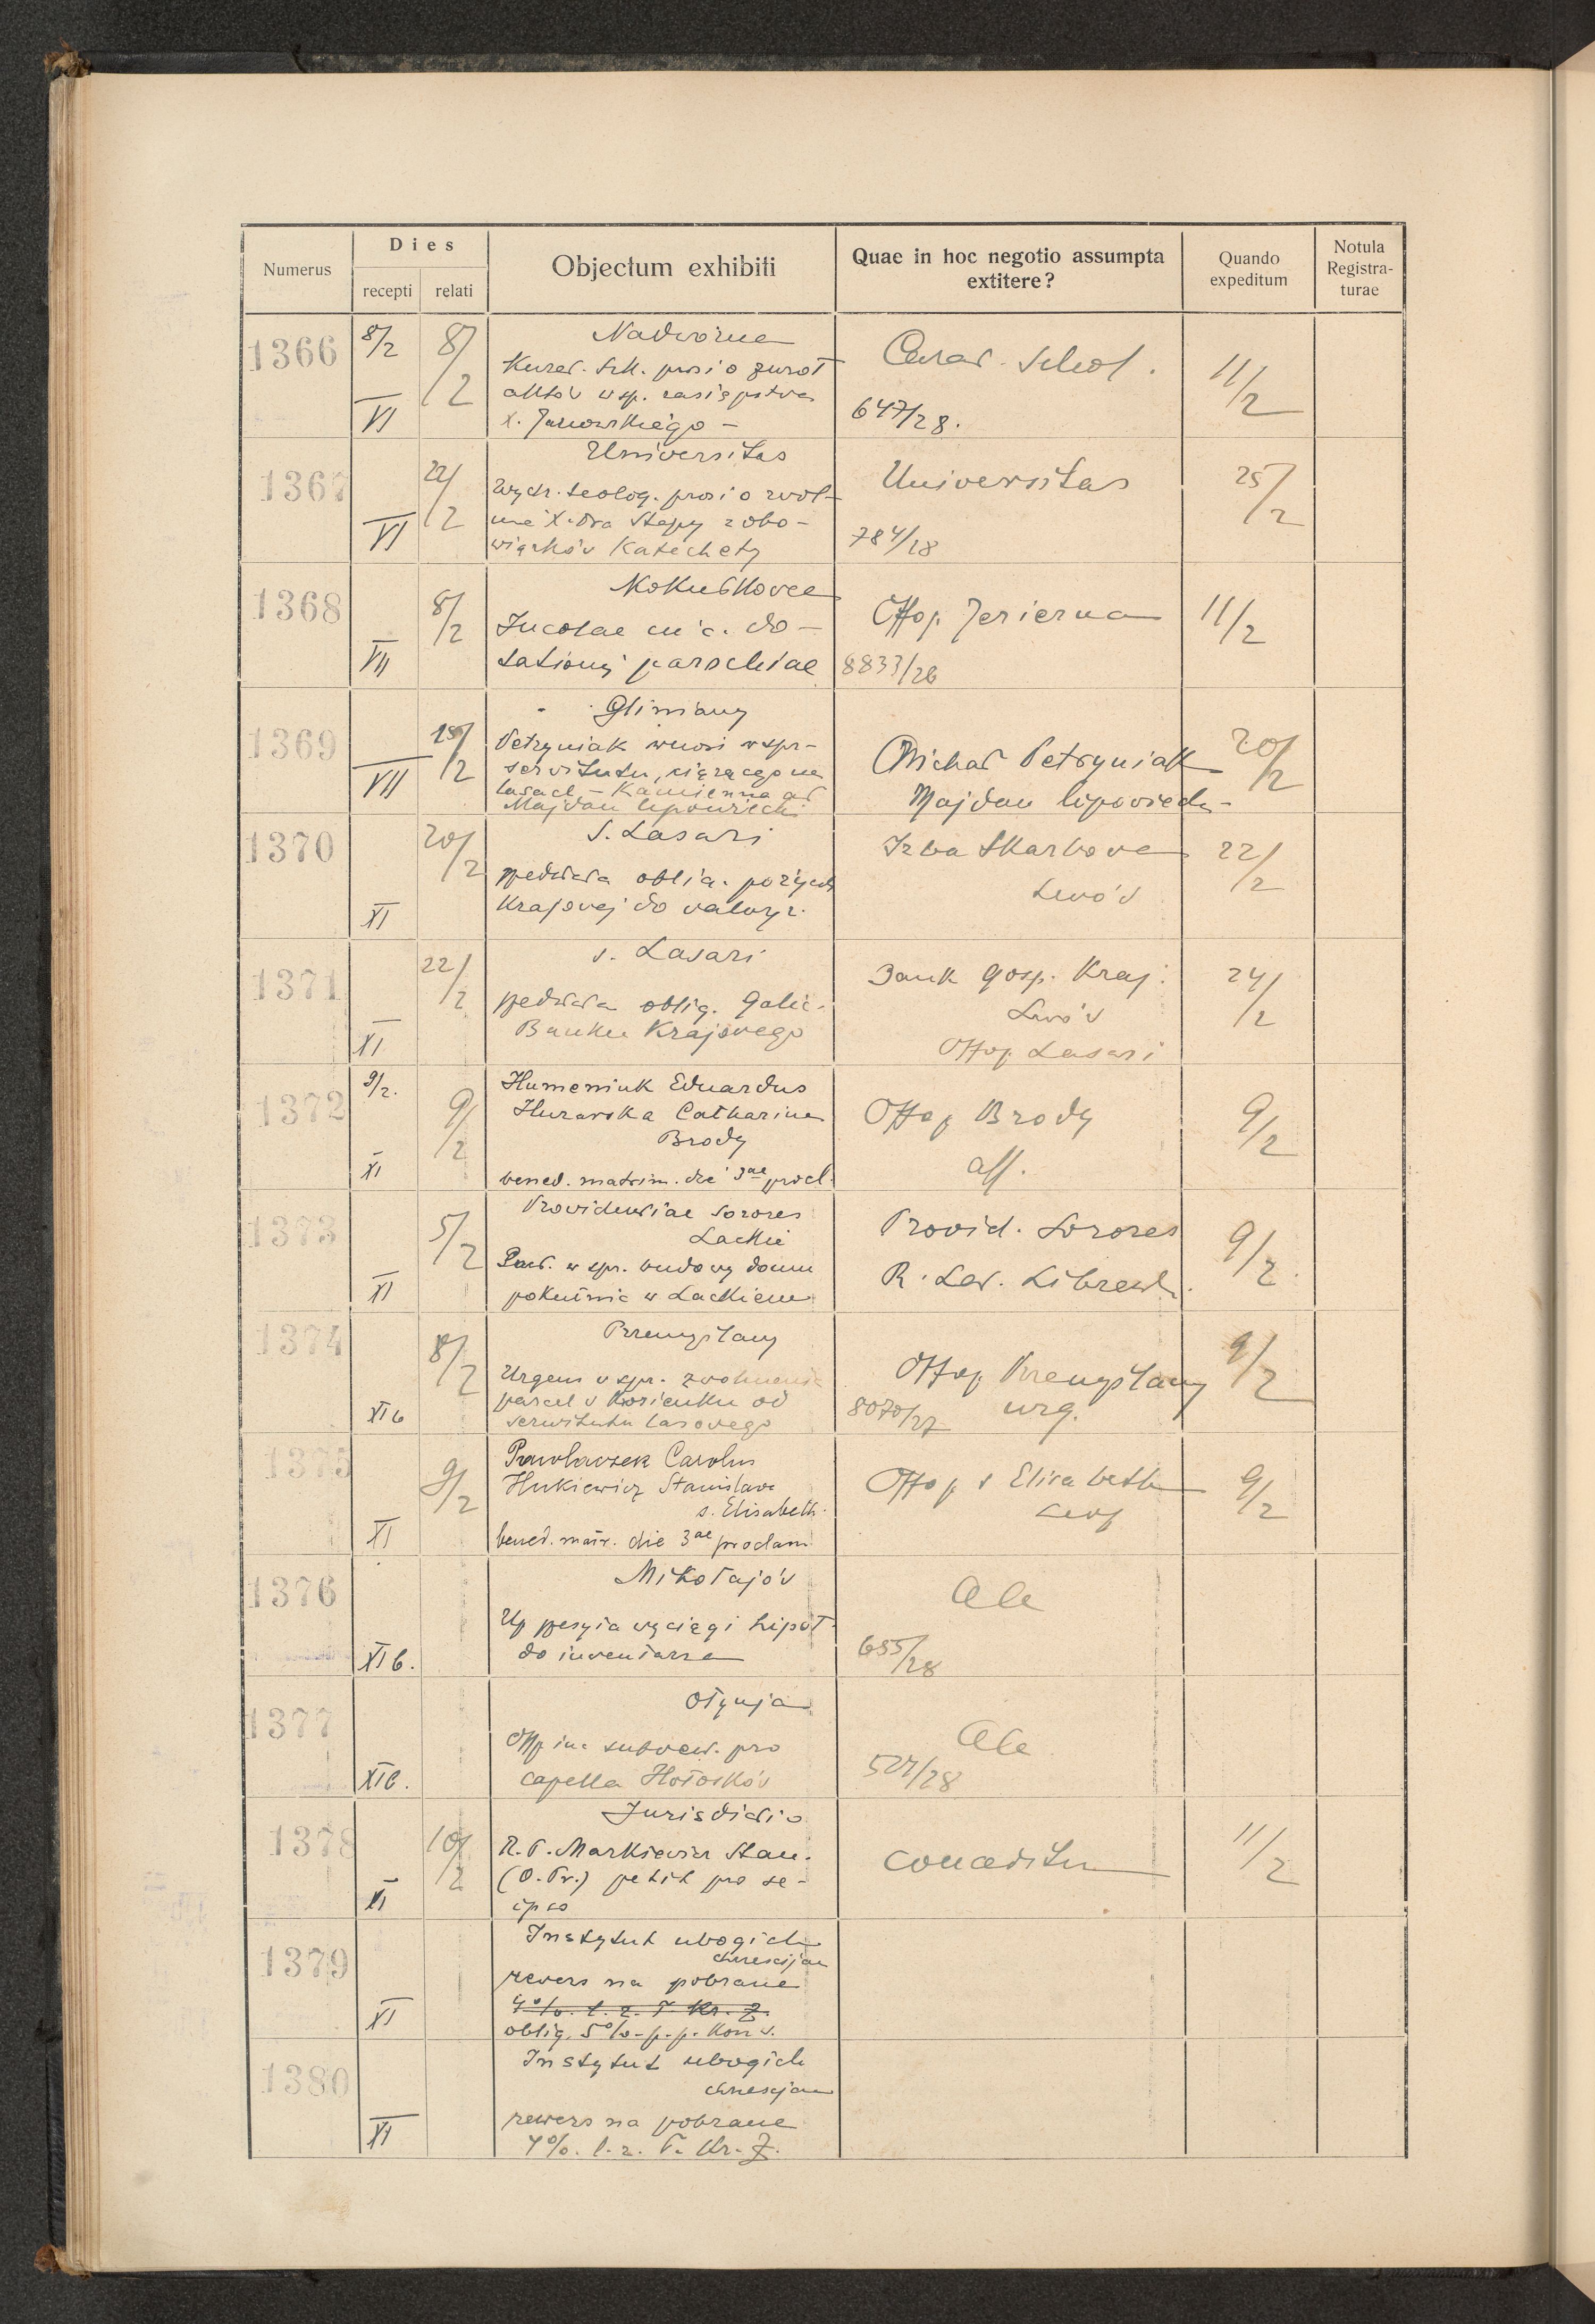 Numerus
Dies
recepti
relati
Objectum exhibiti
Quae in hoc negotio assumpta
extitere?
Quando
expeditum
Notula
Registra-
turae
1366
8/2
VI
8/2
Nadwórna
Kurat. szk. prosi o zwrot
aktów w sp. zastępstwa
X. Jurowskiego –
Curat. Schol.
647/28.
11/2
1367
VI
22/2
Universitas
Wydz. teolog. prosi o zwol-
nie X. Dra Stepy z obo-
wiązków Katechety
Universitas
784/28
25/2
1368
VII
8/2
Kokutkowce
Incolae in c. do-
tationis parochiae
Offop. Jezierna
8833/26
11/2
1369
VII
18/2
Gliniany
Petryniak wnosi w spr-
serwitutu, ciążącego na
lasach – Kamienna ad
Majdan lipowiecki
Michał Petryniak
Majdan lipowiecki-
20/2
1370
XI
20/2
S. Lazari
przedkłada oblig. pożyczk
Krajowej do waloryz.
Izba Skarbowa
Lwów
22/2
1371
XI
22/2
s. Lazari
przedkłada oblig. Galic.
Banku Krajowego
Bank Gosp. Kraj.
Lwów
Offop. Lazari
24/2
1372
9/2.
XI
9/2
Humeniuk Eduardus
Hurarska Catharina
Brody
bened. matrim. die 3ae procl.
Offop. Brody
aff.
9/2
1373
XI
5/2
Providentiae Sorores
Lackie
w spr. budowy domu
pokutnic w Lackiem
Provid. Sorores
R. Lad. Librewsk.
9/2.
1374
XIb
8/2
Przemyślany
Urgens w spr. zwolnienia
parcel w Kosienku od
serwitutu lasowego
Offop. Przemyślany
8070/27 urg.
9/2
1375
XI
9/2
Pawlaczek Carolus
Hukiewicz Stanislava
s. Elisabeth.
bened. matr. die 3ae proclam
Offop. s Elisabeth
Leop
9/2
1376
XI b.
Mikołajów
Up przesyła wyciągi hipot.
do inwentarza
Ale
655/28
1377
XI b.
Otynja
Offop. in c. subven. pro
capella Hołosków
Ale
527/28
1378
XI
10/2
Jurisdictio
R. P. Markiewicz Stan.
(O. Pr.) petit pro se-
ipso
conceditur
11/2
1379
XI
Instytut ubogich
chrześcijan
rewers na pobrane
4%. l. z. T. Kr. Z.
oblig. 5%-p.p. Konw.
1380
XI
Instytut ubogich
chrześcjan
rewers na pobrane
4%. l. z. T. Kr. Z.